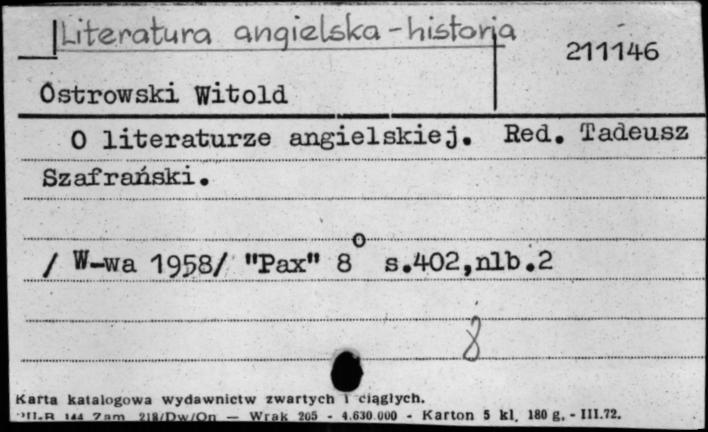 Literatura angielska - historja
211146
Ostrowski Witold
O literaturze angielskiej. Red. Tadeusz
Szafrański.
/ W-wa 1958/ "Pax" 8° s.402,nlb.2
8
Karta katalogowa wydawnictw zwartych i ciągłych.
144 Zam 218/Dw/On — Wrak 205 - 4.630.000 - Karton 5 kl. 180 g. - III.72.